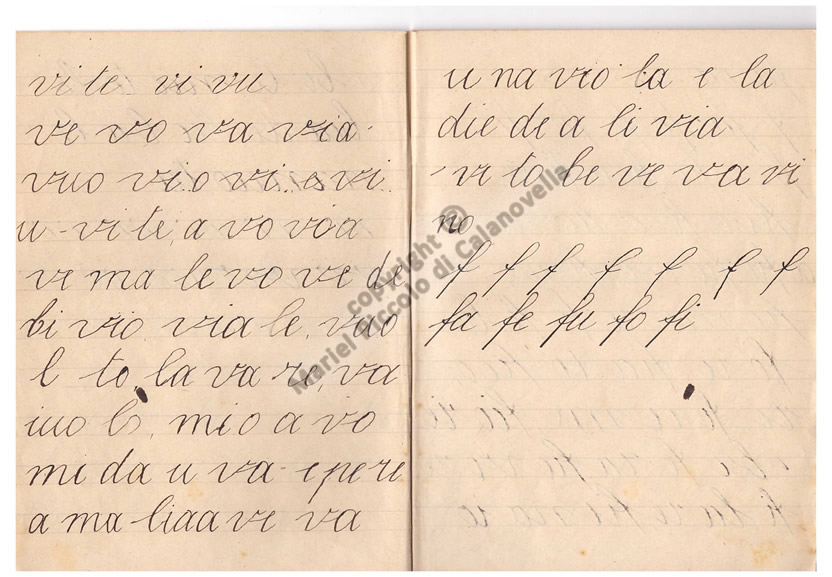 vi te vi vu
ve vo va via
vuo vi o vi e vi
u - vi te, a vo vo a
ve ma le vo ve de
bi vio, via le, vuo
l to, la va re, va
iuo lo, mi o a vo
mi da u va - e pe re
a ma lia a ve va
u na vio la e la
die de a li via
- vi to be ve va vi
no
f f f f f f f
fa fe fu fo fi
copyright ©
Mariel Piccolo di Calanovella